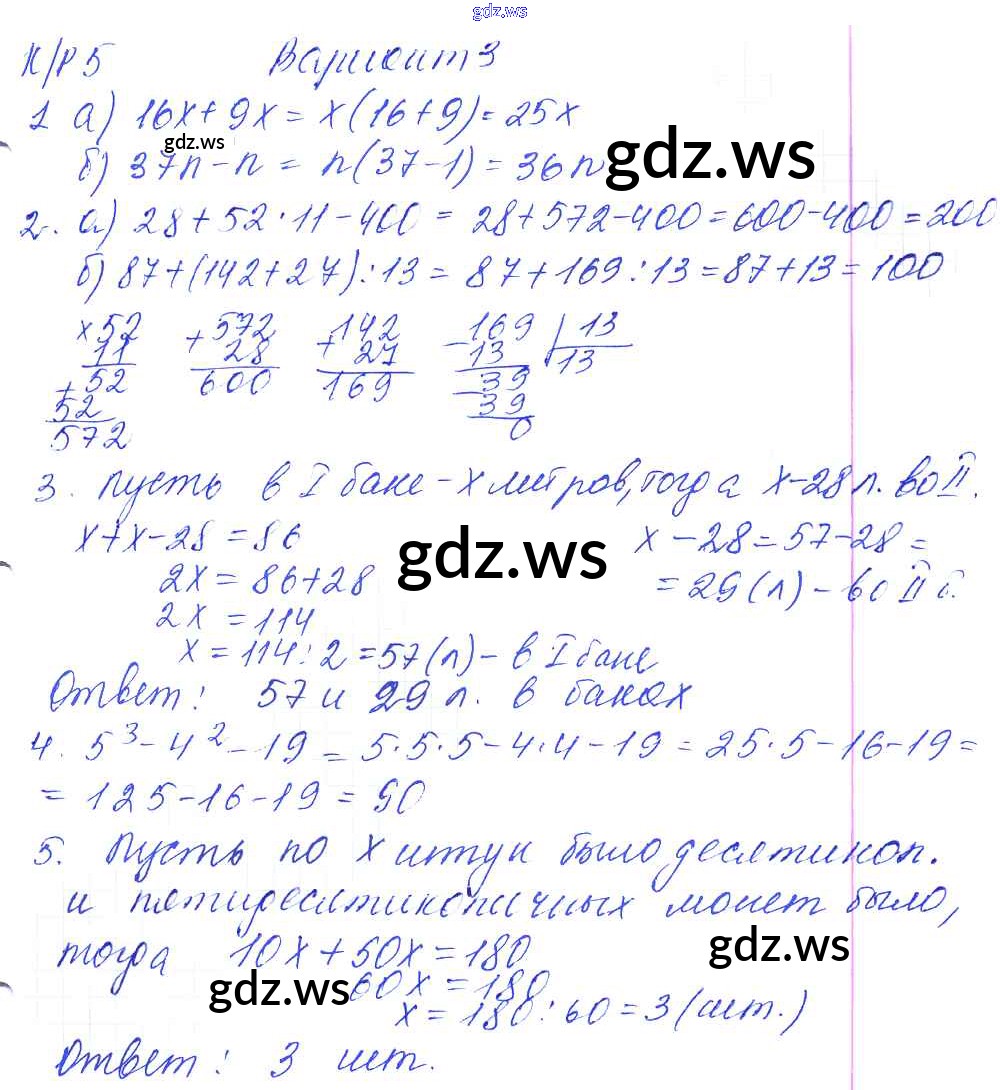 gdz.ws
К/Р 5 Вариант 3
1 а) 16x + 9x = x(16 + 9) = 25x
gdz.ws
gdz.ws
б) 37n - n = n(37 - 1) = 36n
2. а) 28 + 52 · 11 - 400 = 28 + 572 - 400 = 600 - 400 = 200
б) 87 + (142 + 27) : 13 = 87 + 169 : 13 = 87 + 13 = 100
x 52 + 572 + 142 - 169 | 13
11 28 27 13 13
+ 52 600 169 - 39
52 39
572 0
3. Пусть в I баке - x литров, тогда x - 28 л. во II.
x + x - 28 = 86 x - 28 = 57 - 28 =
gdz.ws
2x = 86 + 28 = 29 (л) - во II б.
2x = 114
x = 114 : 2 = 57 (л) - в I баке
Ответ: 57 и 29 л. в баках
4. 5³ - 4² - 19 = 5·5·5 - 4·4 - 19 = 25·5 - 16 - 19 =
= 125 - 16 - 19 = 90
5. Пусть по x штук было десятикоп.
и пятидесятикопичных монет было,
тогда 10x + 50x = 180
gdz.ws
60x = 180
gdz.ws
x = 180 : 60 = 3 (шт.)
Ответ: 3 шт.